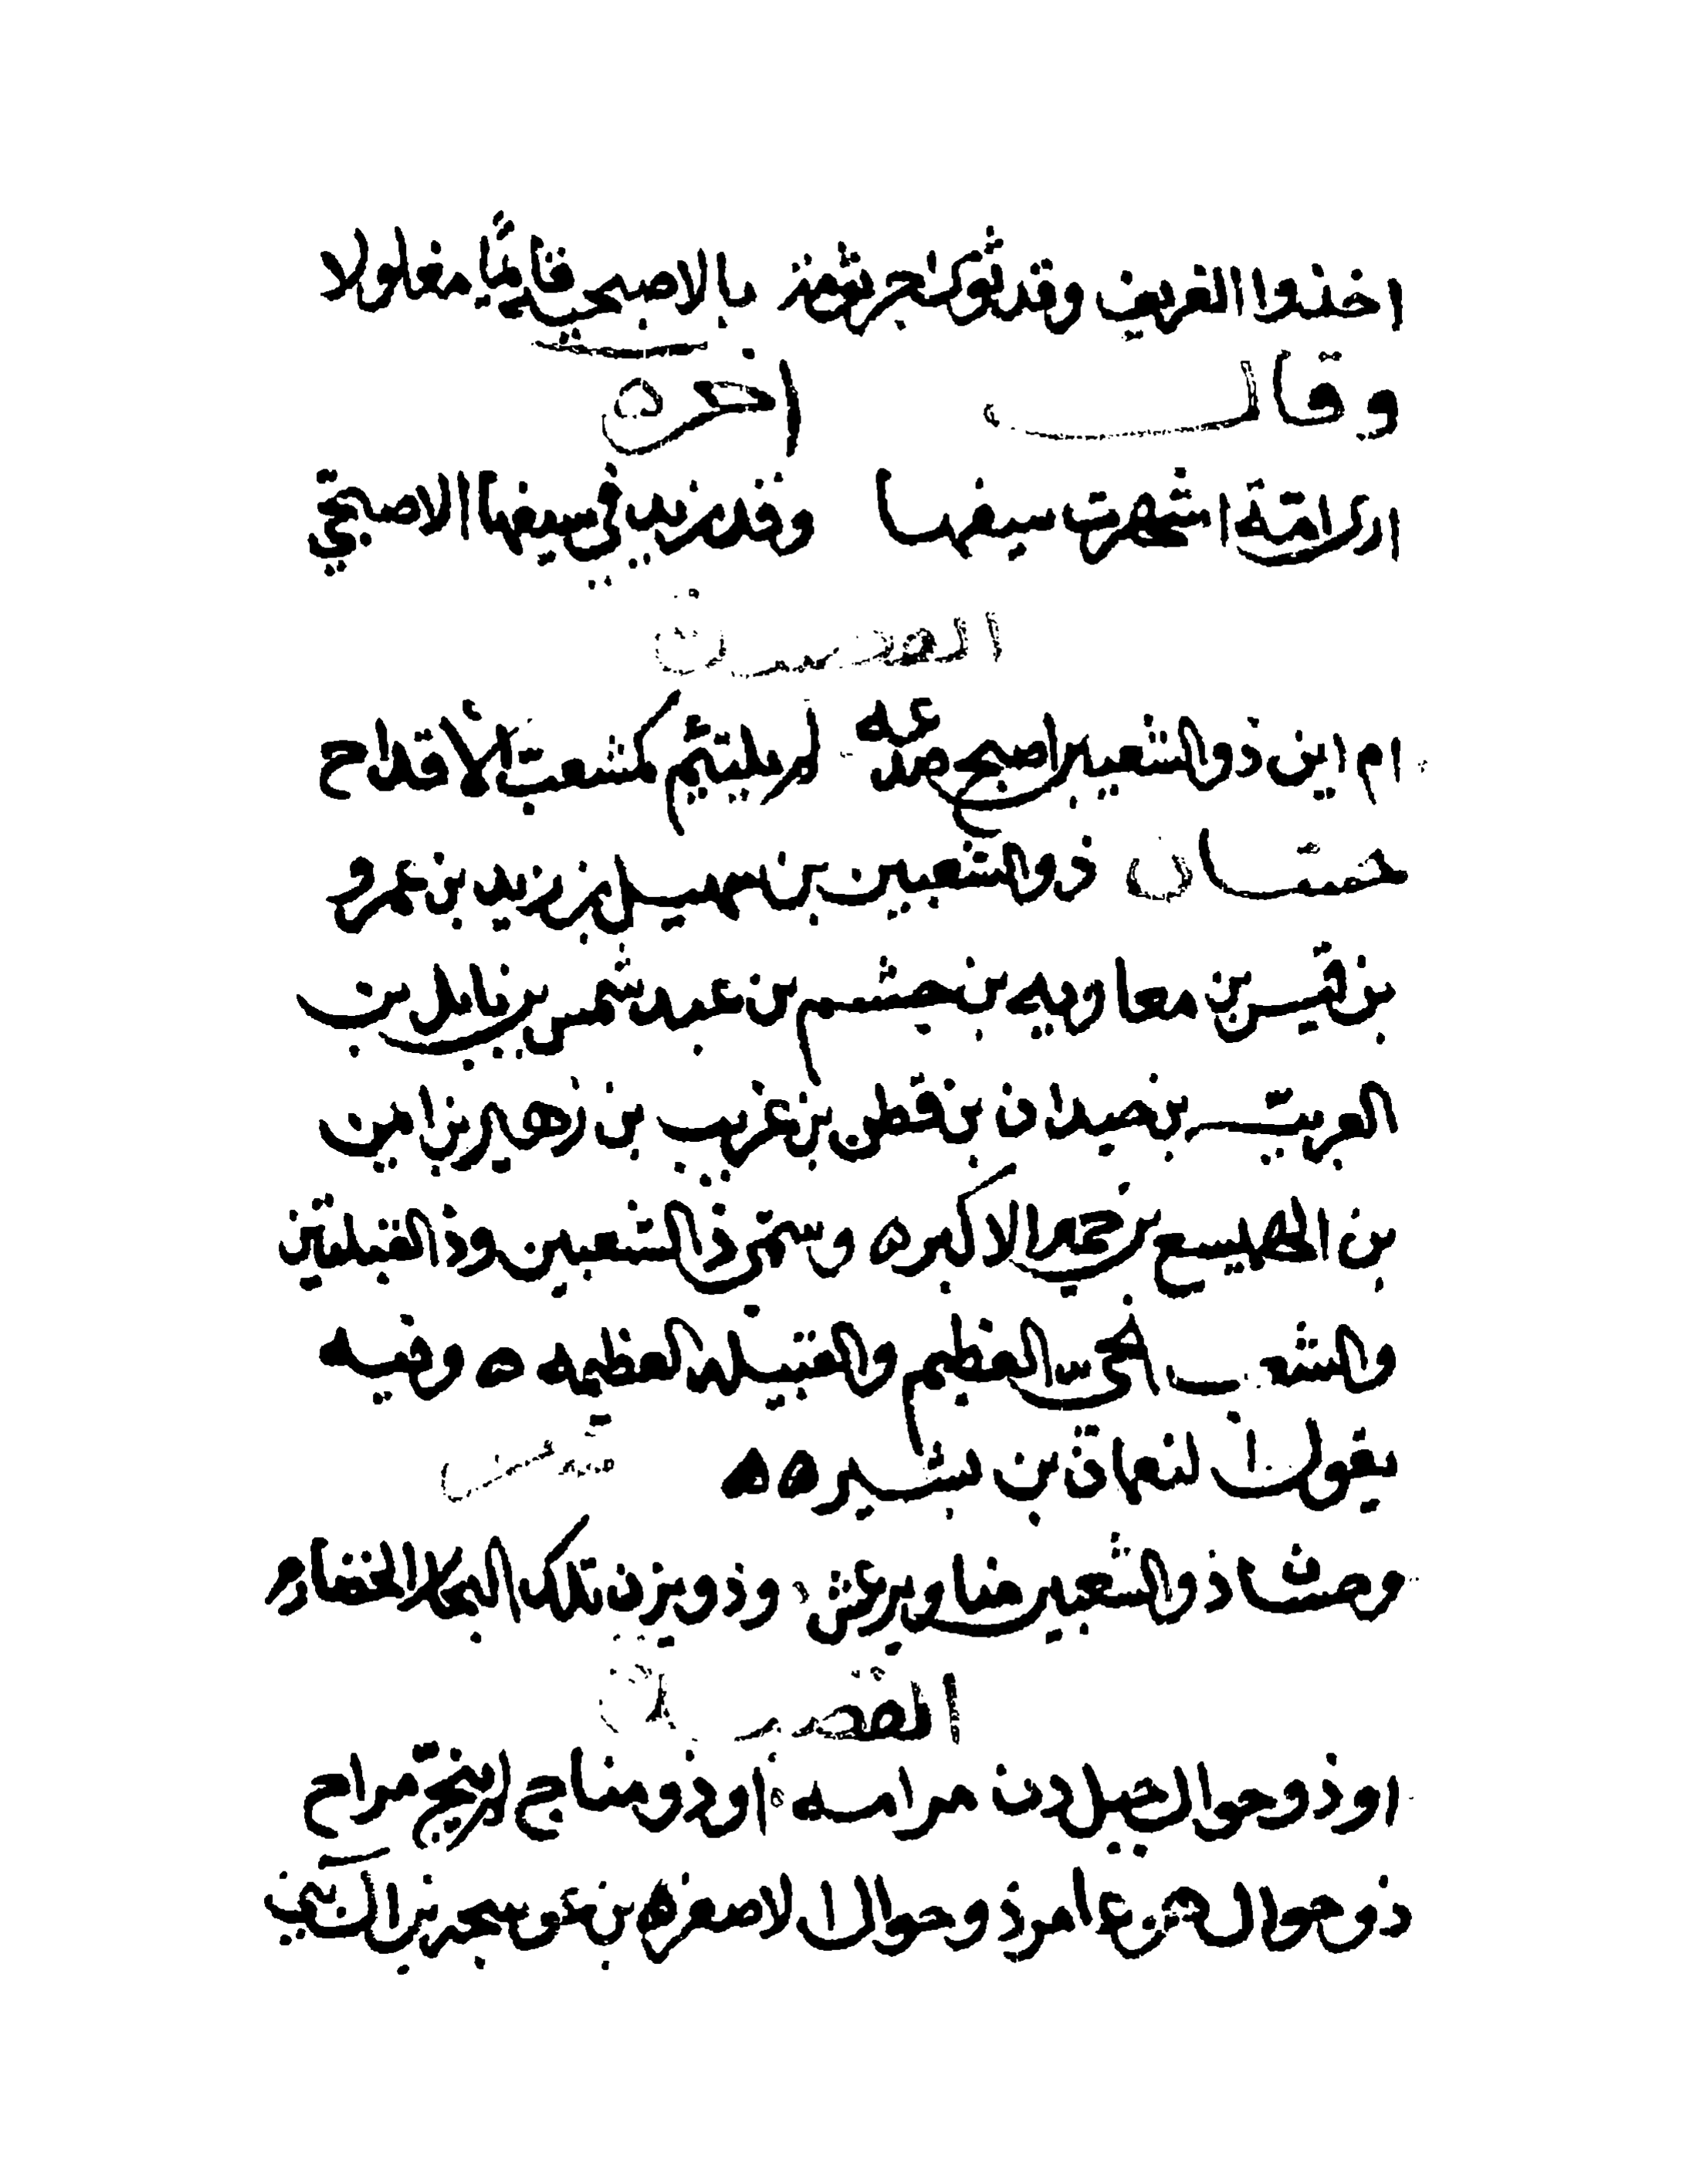 اخذوا العريف وقد ثوى حيزومه بالاصبحية قائما مغلولا
وقال اخره
ارى امة اشهرت سيفها وقد زيد في سيفها الاصبحي
ام اين ذو الشعبين اصبح صدعه لم يلتئم كمشعب الأقداح
حسان ذو الشعبين بن سهيل بن زيد بن عمرو
بن قيس بن معاويه بن جشم بن عبد شمس بن نايل بن
الغريب بن حيدان بن قطن بن عريب بن زهير بن امين
بن الهميسع بن حمير الاكبره وسمى ذا الشعبين وذا القبيلتين
والشعب الحي العظيم والقبيله العظيمه ه وفيه
يقول النعمان بن بشير ه ه شعر
ومنا ذو الشعبين منا ويرعش وذو يزن تلك البحار الخضارم
القصيدة
او ذو حوال حيل دون مرامه او ذو مناح لم ينح بمراح
ذو حوال عامر ذو حوال الاصغره بن عوسجه بن